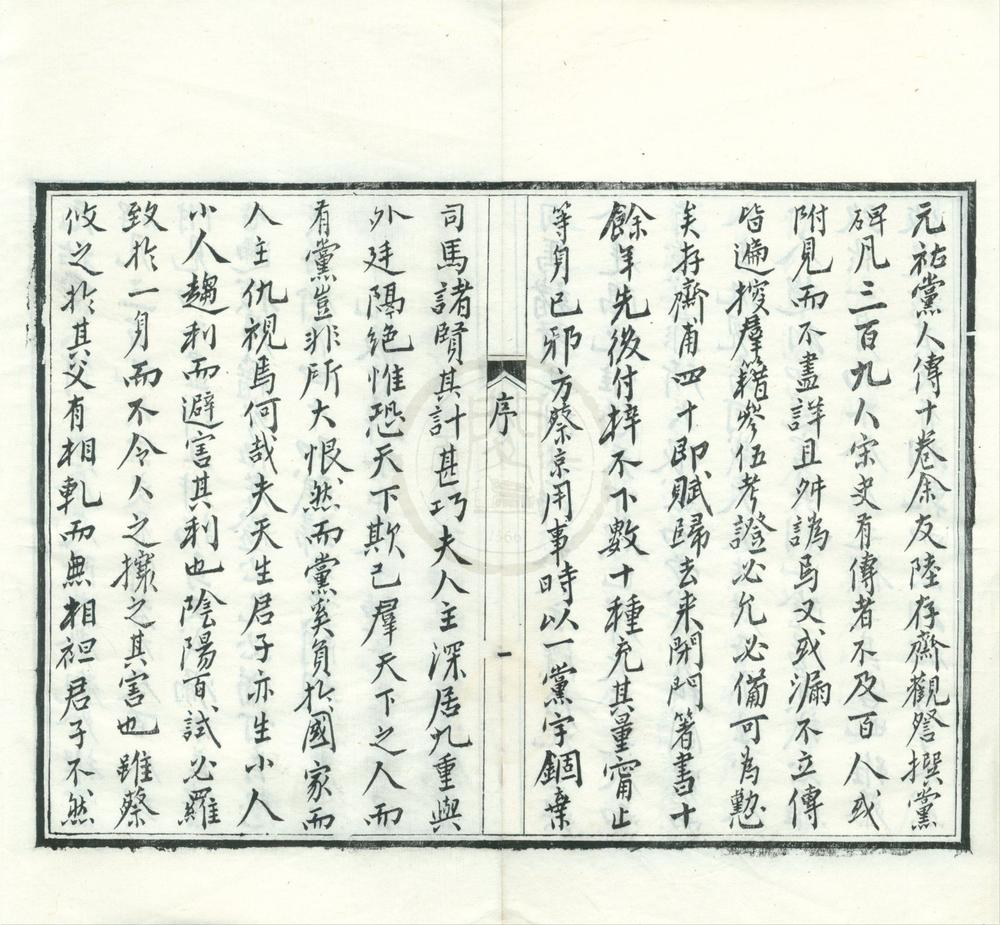 元祐黨人傳十卷余友陸存齋觀詧撰黨
碑凡三百九人宋史有傳者不及百人或
附見而不盡詳且舛譌焉又或漏不立傳
皆遍搜羣籍參伍考證必允必備可為懃
矣存齋甫四十即賦歸去来閉門著書十
餘年先後付梓不下數十種充其量甯止
等身已邪方蔡京用事時以一黨字錮葉
序
一
司馬諸賢其計甚巧夫人主深居九重與
外廷隔绝惟恐天下欺己羣天下之人而
有黨豈非所大恨然而黨奚負扵國家而
人主仇視焉何哉夫天生君子亦生小人
小人趨利而避害其利也陰陽百試必羅
致扵一身而不令人之攘之其害也雖蔡
攸之扵其父有相軋而無相袒君子不然